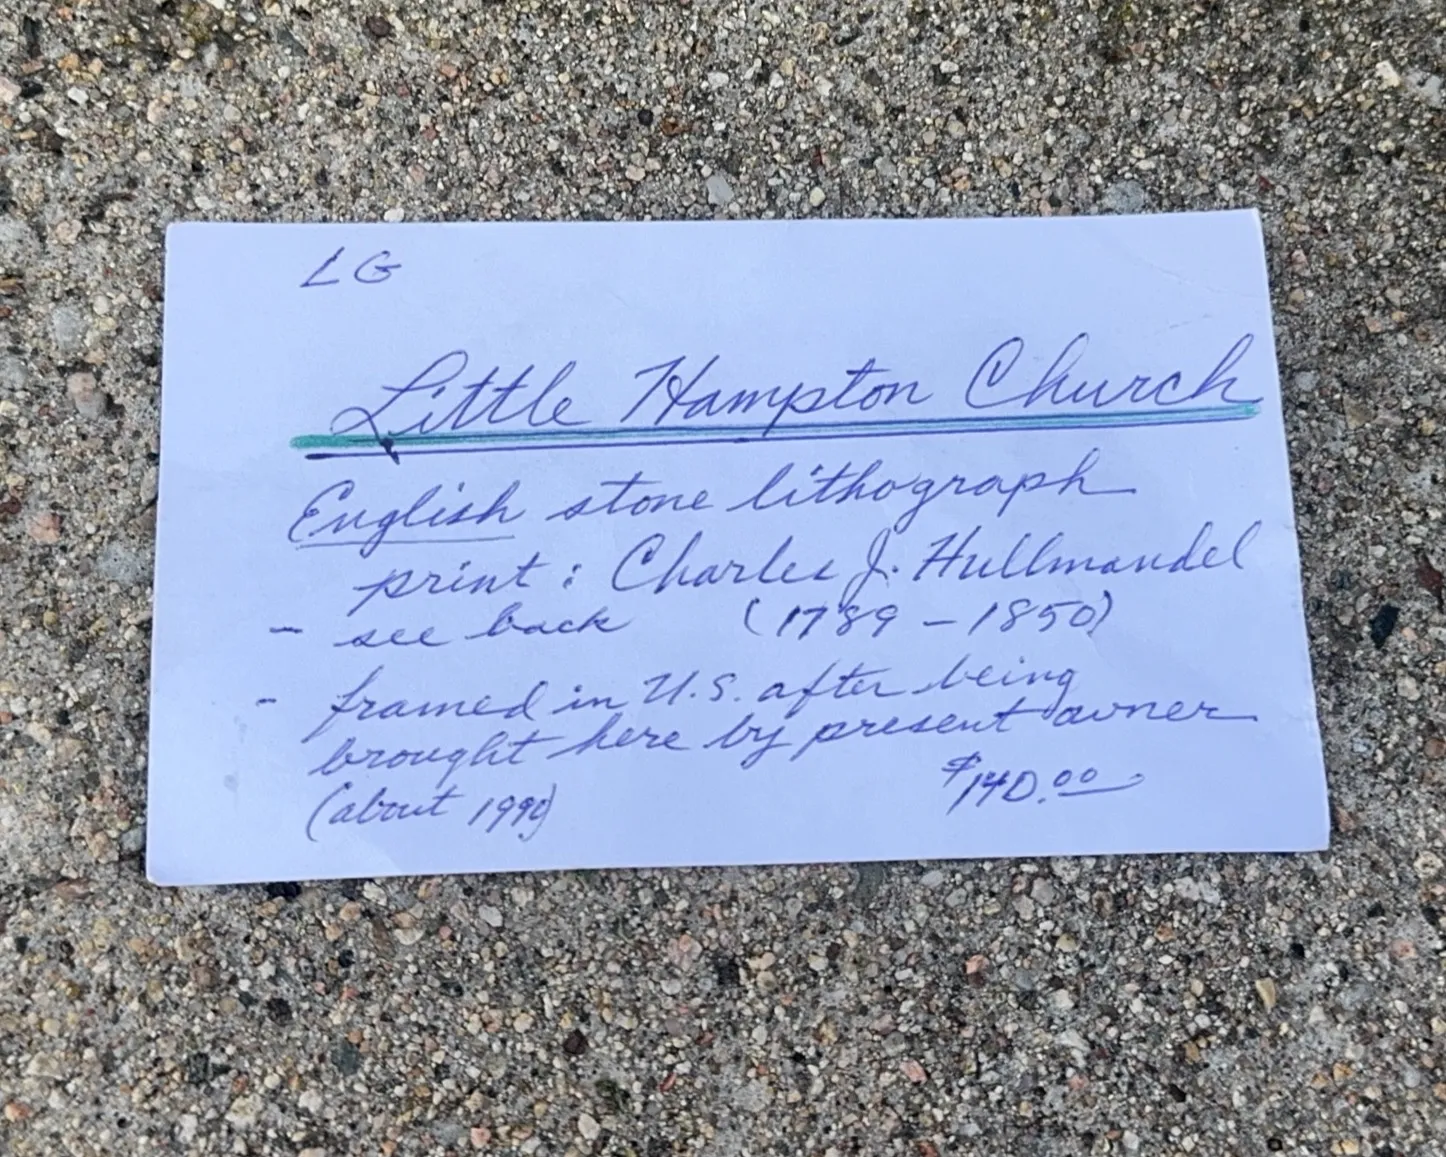 LG
Little Hampton Church
English stone lithograph
print: Charles J. Hullmandel
- see back (1789 - 1850)
- framed in U.S. after being
brought here by present owner
$140.00
(about 1990)